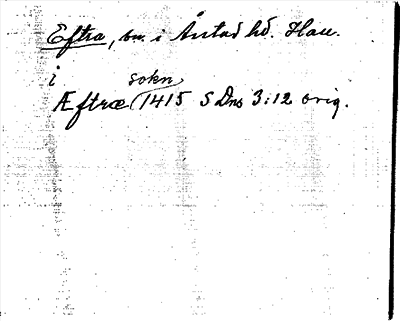 Eftra, sn. i Årstad hd. Hall.
i
Æftræ sokn 1415 SDns 3:12 orig.